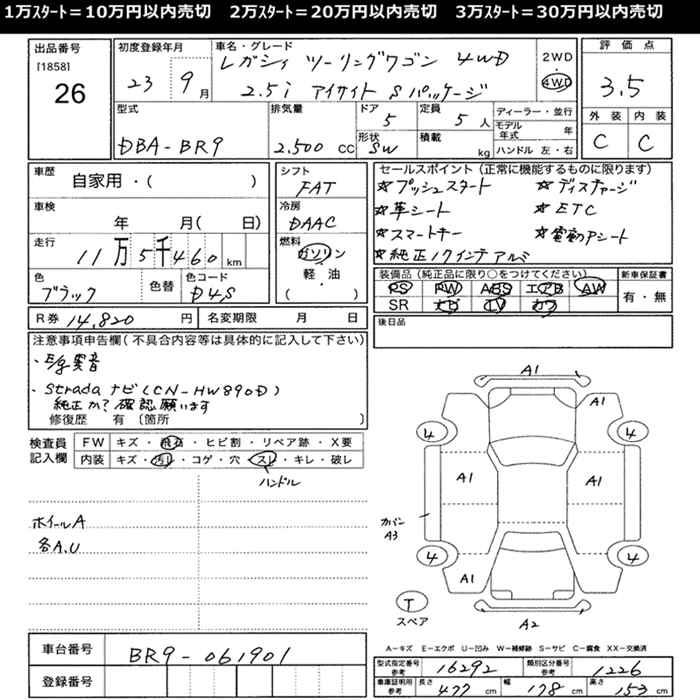 1万ｽﾀｰﾄ＝10万円以内売切　2万ｽﾀｰﾄ＝20万円以内売切　3万ｽﾀｰﾄ＝30万円以内売切
出品番号
[1858]
26
初度登録年月
23 9月
車名・グレード
レガシィ ツーリングワゴン 4WD
2.5i アイサイト Sパッケージ
2WD
・
4WD
評価点
3.5
外装 内装
C C
型式
DBA-BR9
排気量
2.500 cc
ドア
5
形状
SW
定員
5人
積載
kg
ディーラー・並行
モデル年式 年
ハンドル 左・右
車歴
自家用・( )
車検
年 月( 日)
走行
11万5千460 km
色
ブラック
色替
色コード
D4S
シフト
FAT
冷房
DAAC
燃料
ガソリン
軽・油
( )
セールスポイント(正常に機能するものに限ります)
☆プッシュスタート ☆ディスチャージ
☆革シート ☆ETC
☆スマートキー ☆電動Pシート
☆純正17インチアルミ
装備品(純正品に限り○をつけてください)
PS PW ABS エアB AW
SR ナビ TV カワ
新車保証書
有・無
後日品
R券 14,820 円
名変期限 月 日
注意事項申告欄(不具合内容等は具体的に記入して下さい)
・Strada ナビ(CN-HW890D)
純正か？確認願います
修復歴 有 [箇所 ]
検査員
記入欄
FW キズ・飛石・ヒビ割・リペア跡・X要
内装 キズ・汚レ・コゲ・穴・スレ・キレ・破レ
ハンドル
ホイールA
各A.U
A1
A1
4 4
A1 A1
カバン
A3
4 4
A1
T
スペア
A2
A-キズ E-エクボ U-凹み W-補修跡 S-サビ C-腐食 XX-交換済
車台番号
BR9-061901
登録番号
型式指定番号
参考
16292
類別区分番号
参考
1226
車庫証明用
参考
長さ 477 cm 幅 178 cm 高さ 153 cm